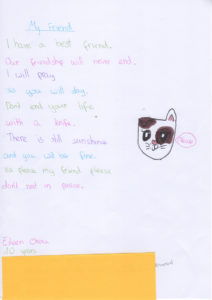 My Friend
I have a best friend.
Our friendship will never end.
I will pray
so you will stay.
Dont end your life
with a knife.
There is still sunshine
and you will be fine.
so please my friend please
don't rest in peace.
Eileen
10 years